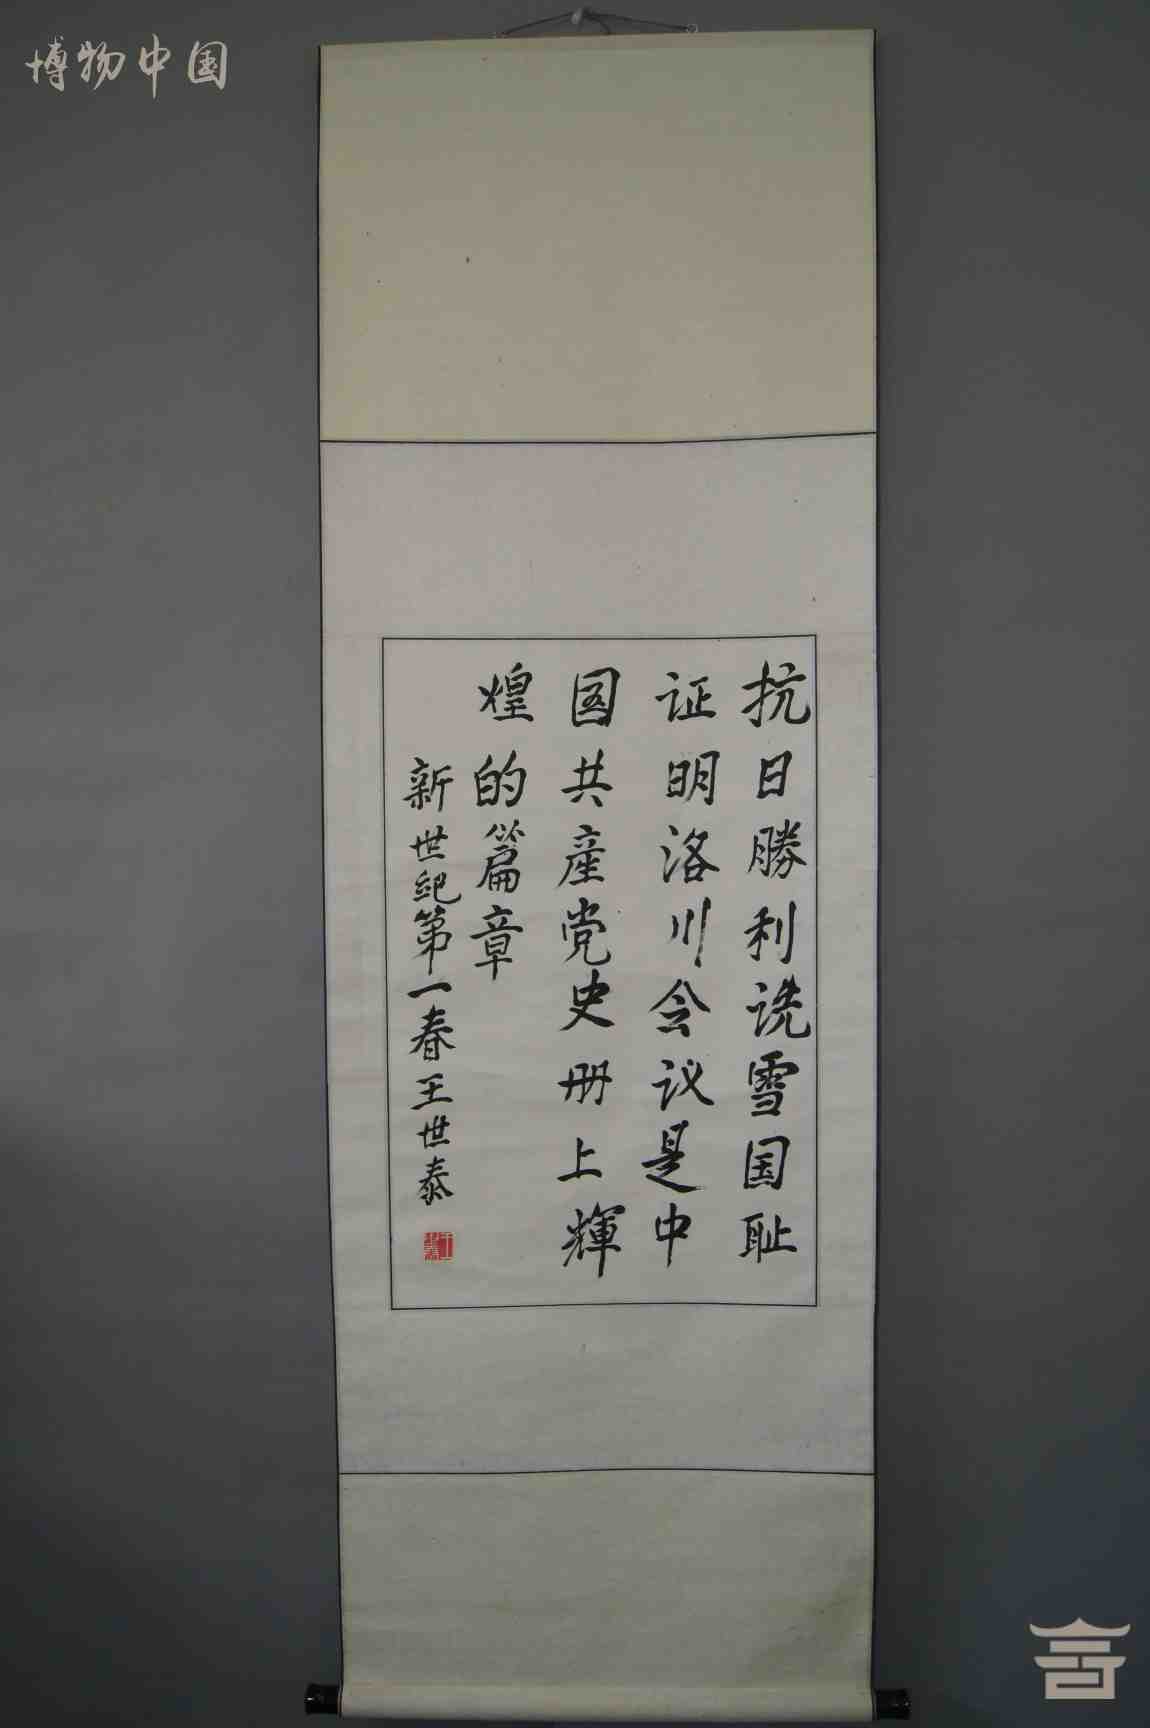 博物中国
抗日勝利洗雪国耻
证明洛川会议是中
国共産党史册上輝
煌的篇章
新世纪第一春王世泰